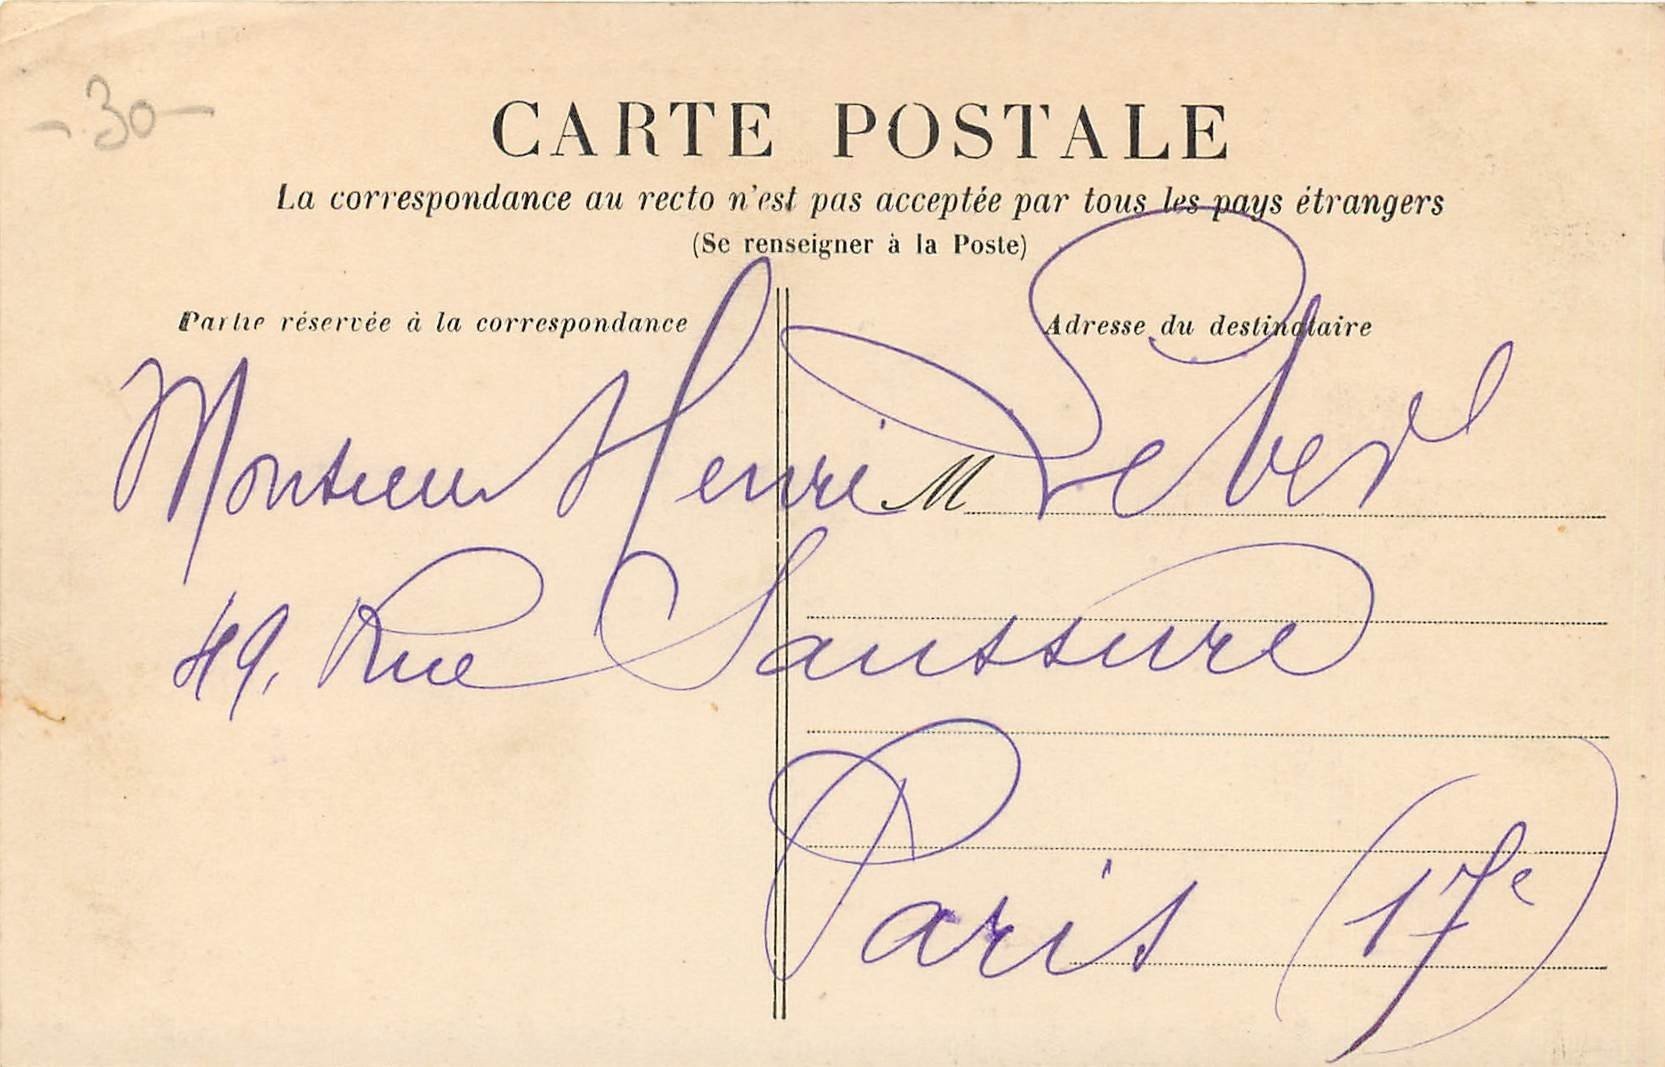 - 30 -
CARTE POSTALE
La correspondance au recto n'est pas acceptée par tous les pays étrangers
(Se renseigner à la Poste)
Partie réservée à la correspondance
Adresse du destinataire
Monsieur Henri M Lebert
49, Rue Saussure
Paris (17e)